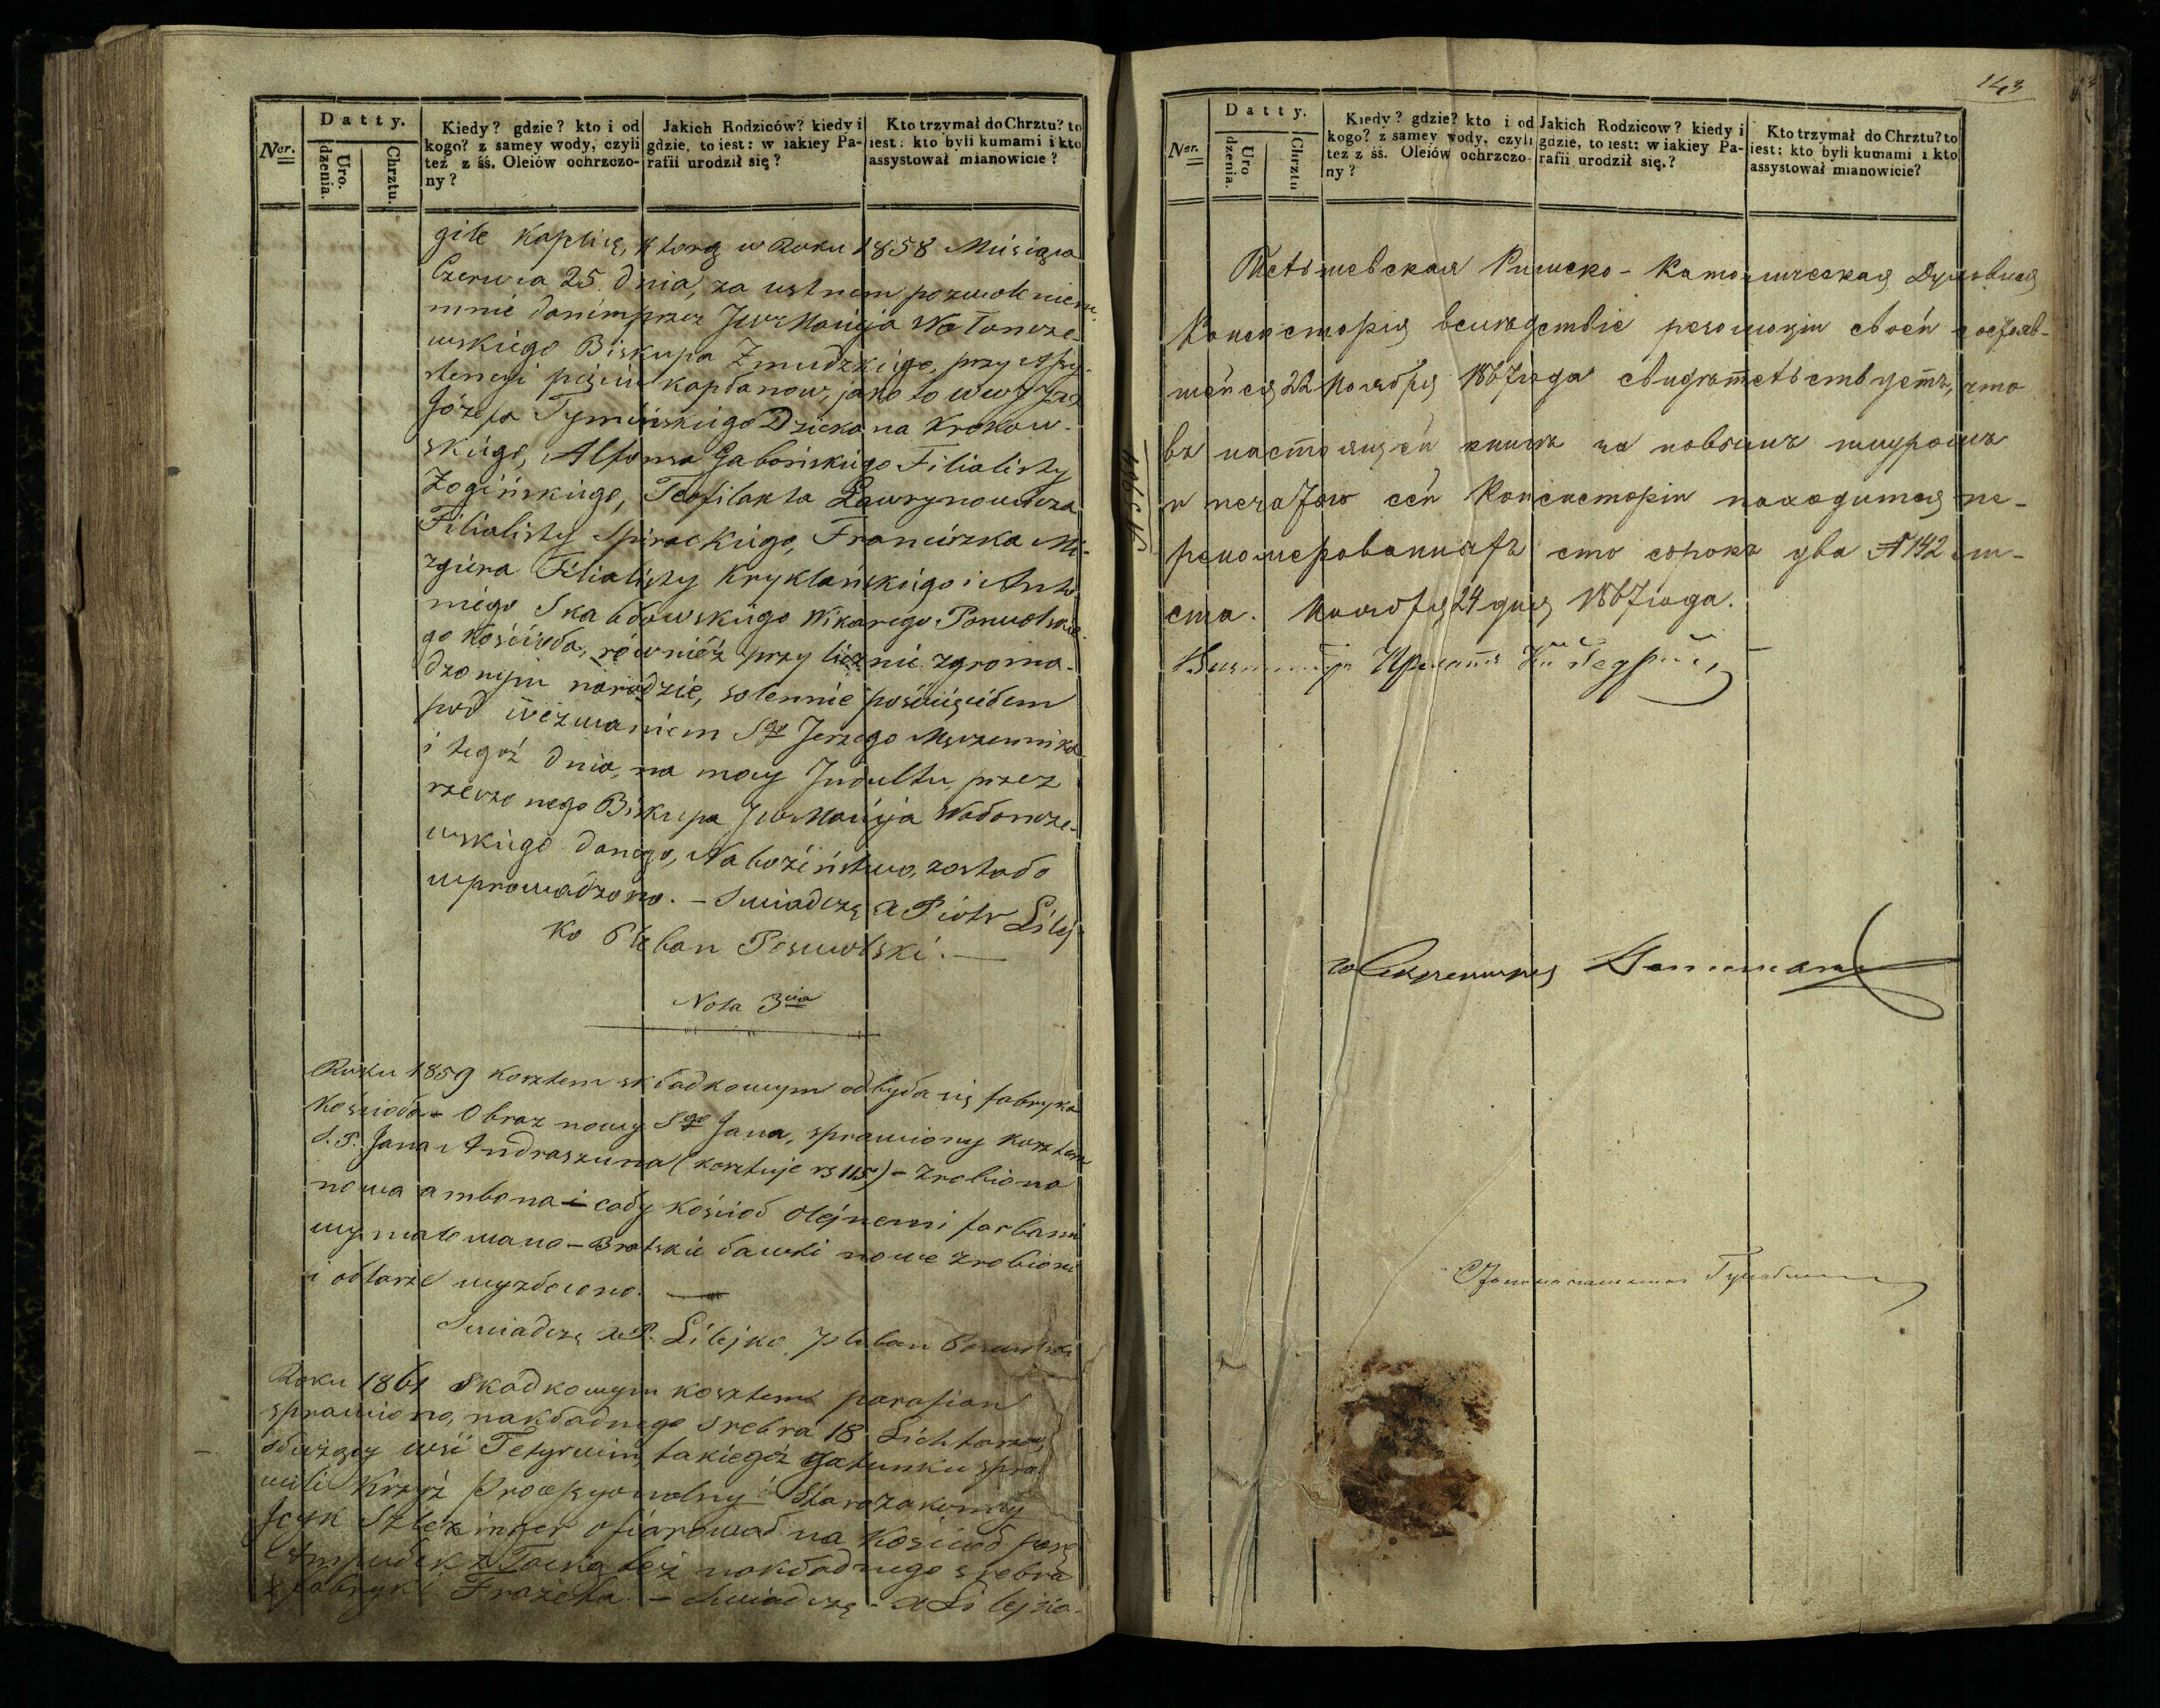 Ner.
Datty.
Uro. dzenia.
Chrztu.
Kiedy? gdzie? kto i od
kogo? z samey wody, czyli
też z śś. Oleiów ochrzczo-
ny?
Jakich Rodziców? kiedy i
gdzie, to iest: w iakiey Pa-
rafii urodził się?
Kto trzymał do Chrztu? to
iest: kto byli kumami i kto
assystował mianowicie?
gile Kaplicę, którą w Roku 1858 Miesiąca
Czerwca 25 dnia, za ustnem pozwoleniem
mnie danim przez JW Macieja Wołoncze-
wskiego Biskupa Żmudzkiego, przy assy-
stencyi pięciu kapłanow, jako to
Józefa Tymińskiego Dziekana Krokow-
skiego, Alfonsa Gabońskiego Filialisty
Żogińskiego, Teofilakta Ławrynowicza
Filialisty Spirackiego, Franciszka Mi-
zgiera Filialisty Kryklańskiego i Anto
niego Skabłowskiego Wikarego Poszwolskie-
go Kościoła, również przy licznie zgroma-
dzonym narodzie, solennie poświęciłem
pod wezwaniem Sgo Jerzego Męczennika
i tegoż dnia, na mocy Indultu przez
rzeczonego Biskupa JW Macieja Wołoncze-
wskiego danego, Nabożeństwo, zostało
wprowadzono. – Swiadczę X Piotr Lilej
ko Pleban Poszwolski. —
Nota 3cia
Roku 1859 kosztem składkowym odbyła się fabryka
Kościoła – Obraz nowy Sgo Jana, sprawiony kosztem
S. P. Jana Andraszuna (kosztuje rs 115) – zrobiona
nowa ambona i cały Kościoł olejnemi farbami
wymalowano – Bratskie ławki nowe zrobiono
i ołtarze wyzłocono. —
Swiadczę X P. Lilejko, Pleban Poszwolski
Roku 1861 Składkowym kosztem parafian
sprawiono, nakładnego Srebra 18 Lichtarzow,
służący wsi Tetyrwin, takiegoż gatunku spra-
wili Krzyż Processyonalny Starozakonny
Icyk Szlezinger ofiarował na Kościoł parę
Ampułek z Tacką też nakładnego srebra
z fabryki Frażeta. – Swiadczę – X Lilejko.
143
Ner.
Datty.
Uro dzenia.
Chrztu
Kiedy? gdzie? kto i od
kogo? z samey wody, czyli
też z śś. Oleiów ochrzczo-
ny?
Jakich Rodzicow? kiedy i
gdzie, to iest: w iakiey Pa-
rafii urodził się.?
Kto trzymał do Chrztu? to
iest: kto byli kumami i kto
assystował mianowicie?
Тельшевская Римско-Католическая Духовная
Консисторія вслѣдствіе резолюціи своей состояв-
шейся 22 Ноября 1867 года свидѣтельствуетъ, что
въ настоящей книгѣ за повѣшнъ шнуромъ
и печатью сей Консисторіи находится пе-
рено­мерованныхъ сто сорокъ два № 142 ли-
ста. Ноября 24 дня 1867 года.
Прелатъ
Секретарь
Столоначальникъ